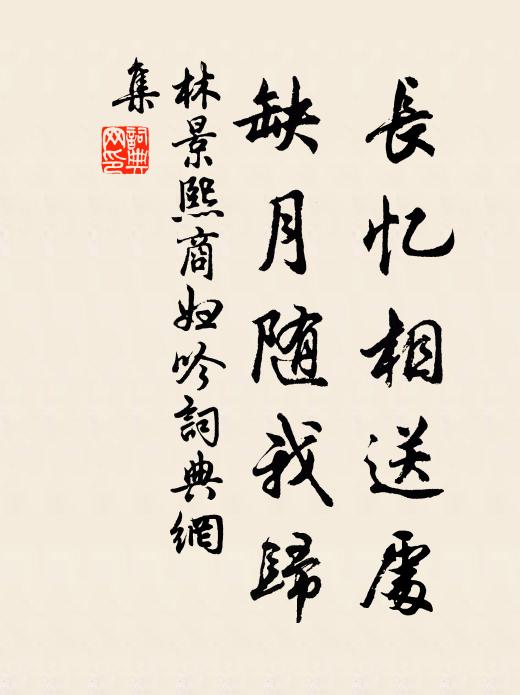 長忆相送處
缺月随我歸
林景熙商妇吟詞典網
集
詞典网印